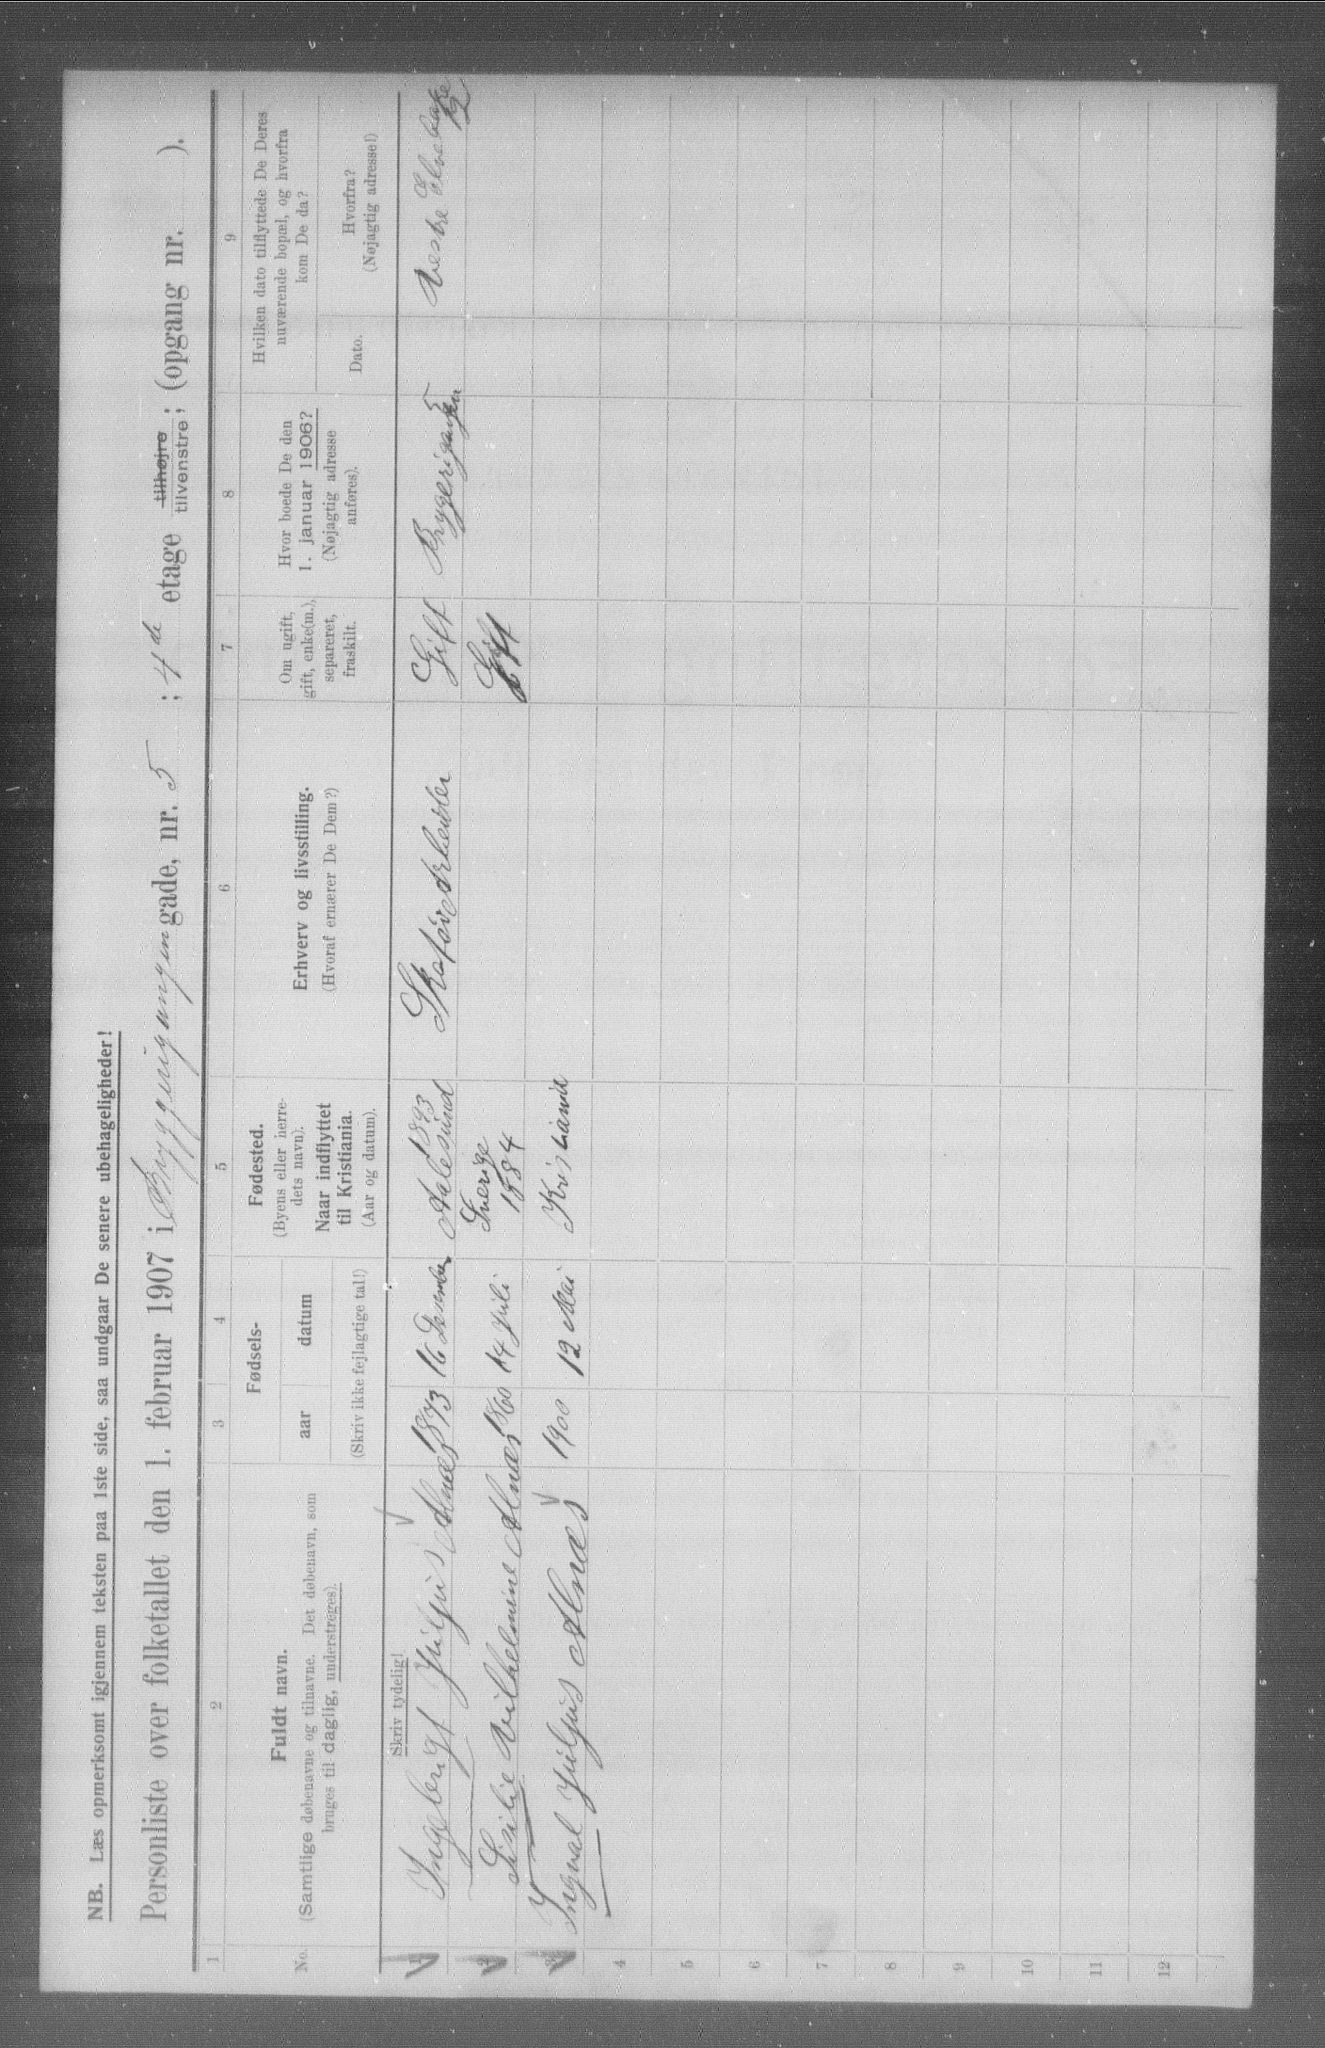 NB. Læs opmerksomt igjennem teksten paa 1ste side, saa undgaar De senere ubehageligheder!
Personliste over folketallet den 1. februar 1907 i Bryggerigangen gade, nr. 5 ; 4de etage tilhøjre tilvenstre; (opgang nr. ).
1 2 3 4 5 6 7 8 9
No.
Fuldt navn.
(Samtlige døbenavne og tilnavne. Det døbenavn, som
bruges til daglig, understreges).
Fødsels-
aar datum
(Skriv ikke fejlagtige tal!)
Fødested.
(Byens eller herre-
dets navn).
Naar indflyttet
til Kristiania.
(Aar og datum).
Erhverv og livsstilling.
(Hvoraf ernærer De Dem?)
Om ugift,
gift, enke(m.),
separeret,
fraskilt.
Hvor boede De den
1. januar 1906?
(Nøjagtig adresse
anføres).
Hvilken dato tilflyttede De Deres
nuværende bopæl, og hvorfra
kom De da?
Dato.
Hvorfra?
(Nøjagtig adresse!)
Skriv tydelig!
1 Ingebrigt Juljus Alnæs 1873 16 Desember Aalesund 1893 Gift Bryggerigangen 5 Vestre Elvebakke 12
2 Vilhelmine Alnæs 1860 14 Juli Sverige 1884 Gift
3 Ingval Juljus Alnæs 1900 12 Mai Kristiania
4
5
6
7
8
9
10
11
12